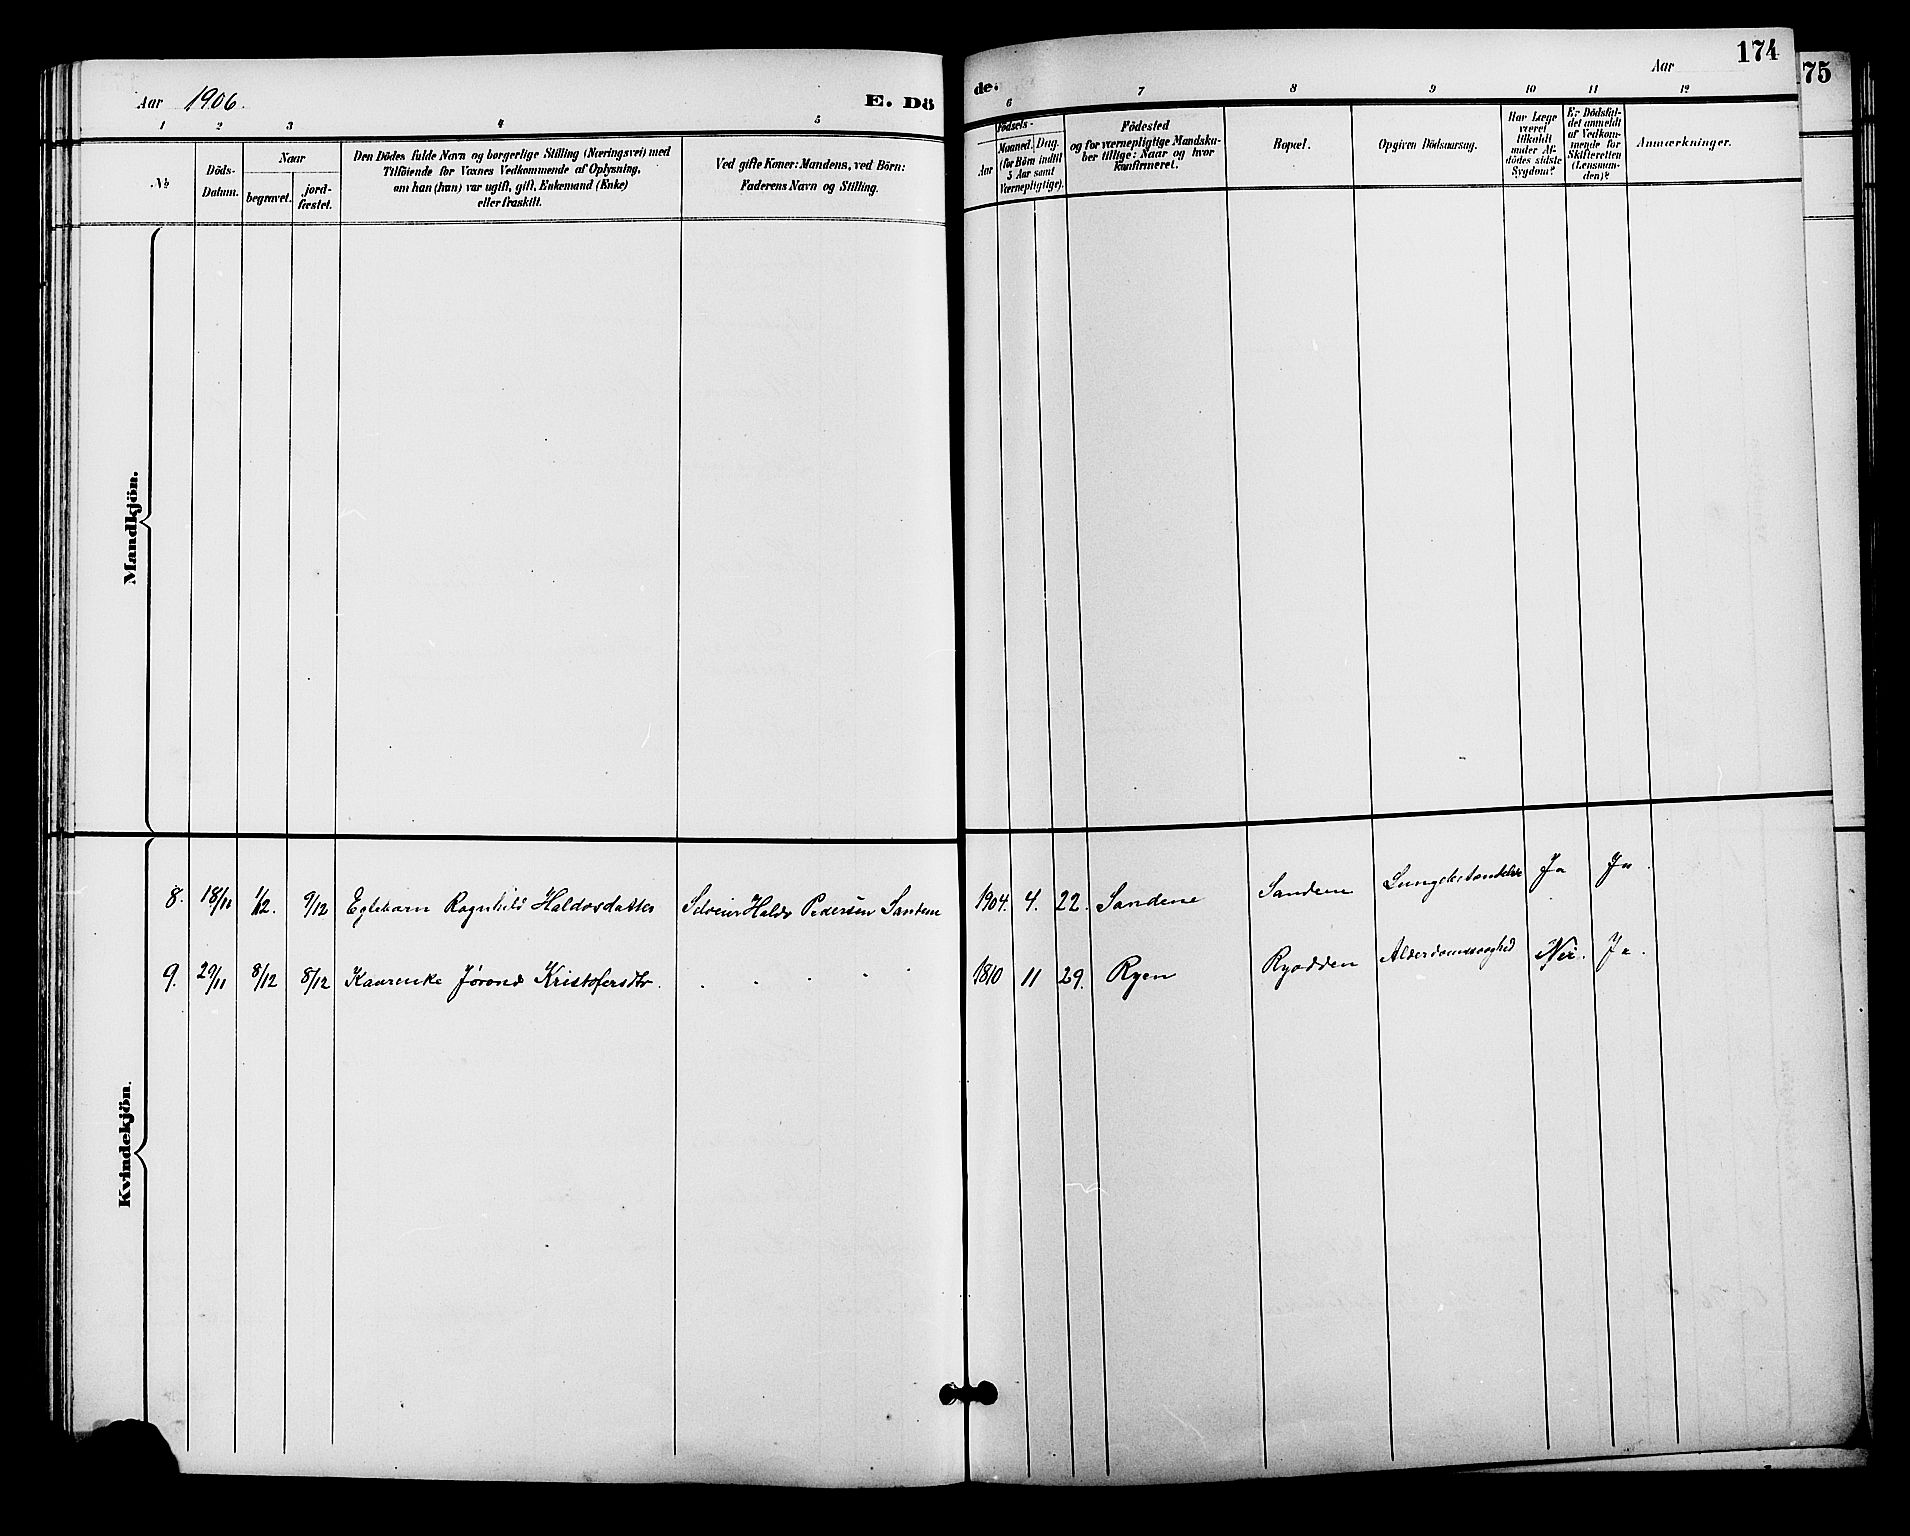 Aar 1906.
E. Dö
de.
Aar
174
75
1 2 3 4 5 6 7 8 9 10 11 12
No
Döds-
Datum.
Naar
begravet.
jord-
fæstet.
Den Dödes fulde Navn og borgerlige Stilling (Næringsvei) med
Tilföiende for Voxnes Vedkommende af Oplysning,
om han (hun) var ugift, gift, Enkemand (Enke)
eller fraskilt.
Ved gifte Koner: Mandens, ved Börn:
Faderens Navn og Stilling.
Födsels-
Aar
Maaned.
Dag.
(for Börn indtil
5 Aar samt
Værnepligtige).
Födested
og for værnepligtige Mandsku-
ber tillige: Naar og hvor
Konfirmeret.
Bopæl.
Opgiven Dödsaarsag.
Har Læge
været
tilkaldt
under Af-
dödes sidste
Sygdom?
Er Dödsfal-
det anmeldt
af Vedkom-
mende for
Skifteretten
(Lensman-
den)?
Anmærkninger.
Mandkjön.
Kvindekjön.
8. 18/11 1/12. 9/12 Egtebarn Ragnhild Haldorsdatter Pedersen Sandene 1904. 4. 22. Sandene Sandene Lungebetændelse Ja Ja.
9. 29/11 8/12 8/12 Jørond Kristofersdtr. 1810 11 29. Ryen Ryodden Alderdomssvaghed Nei. Ja.